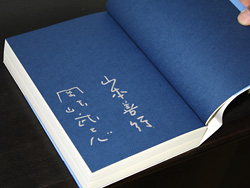 山本善行
岡崎武志